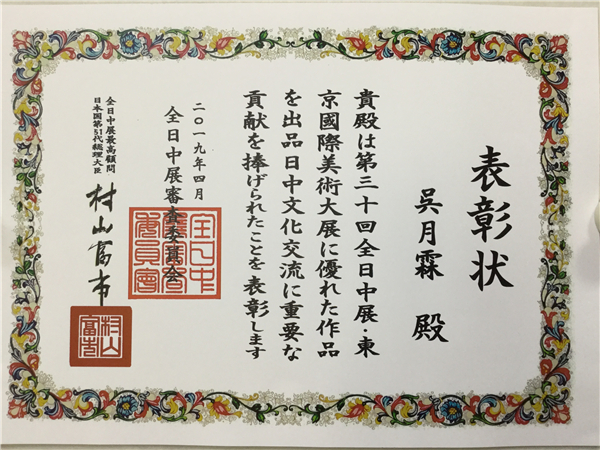 表彰状
吳月霖 殿
貴殿は第三十回全日中展・東
京國際美術大展に優れた作品
を出品日中文化交流に重要な
貢献を捧げられたことを表彰します
二〇一九年四月
全日中展審査委員会
全日中展最高顧問
日本国第81代総理大臣
村山富市
村山
富市